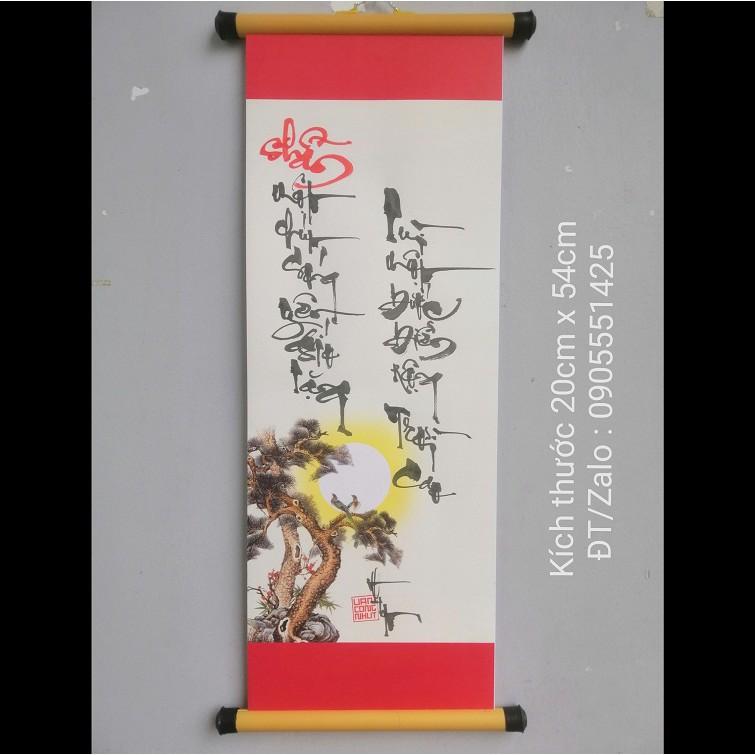 Nhẫn
Một Chút Sóng Yên Lặng
Lùi Một Bước Biển Rộng Trời Cao
CONG
NHUT
Kích thước 20cm x 54cm
ĐT/Zalo : 0905551425